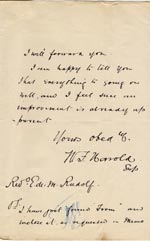 I will forward you
I am happy to tell you
that everything is going on
well, and I feel sure an
improvement is already ap
-parent
Yours obed St.
W J Harrold
Supt
Revd. E. de M. Rudolf
P.S. I have just found "Form" and
enclose it as requested in Memo